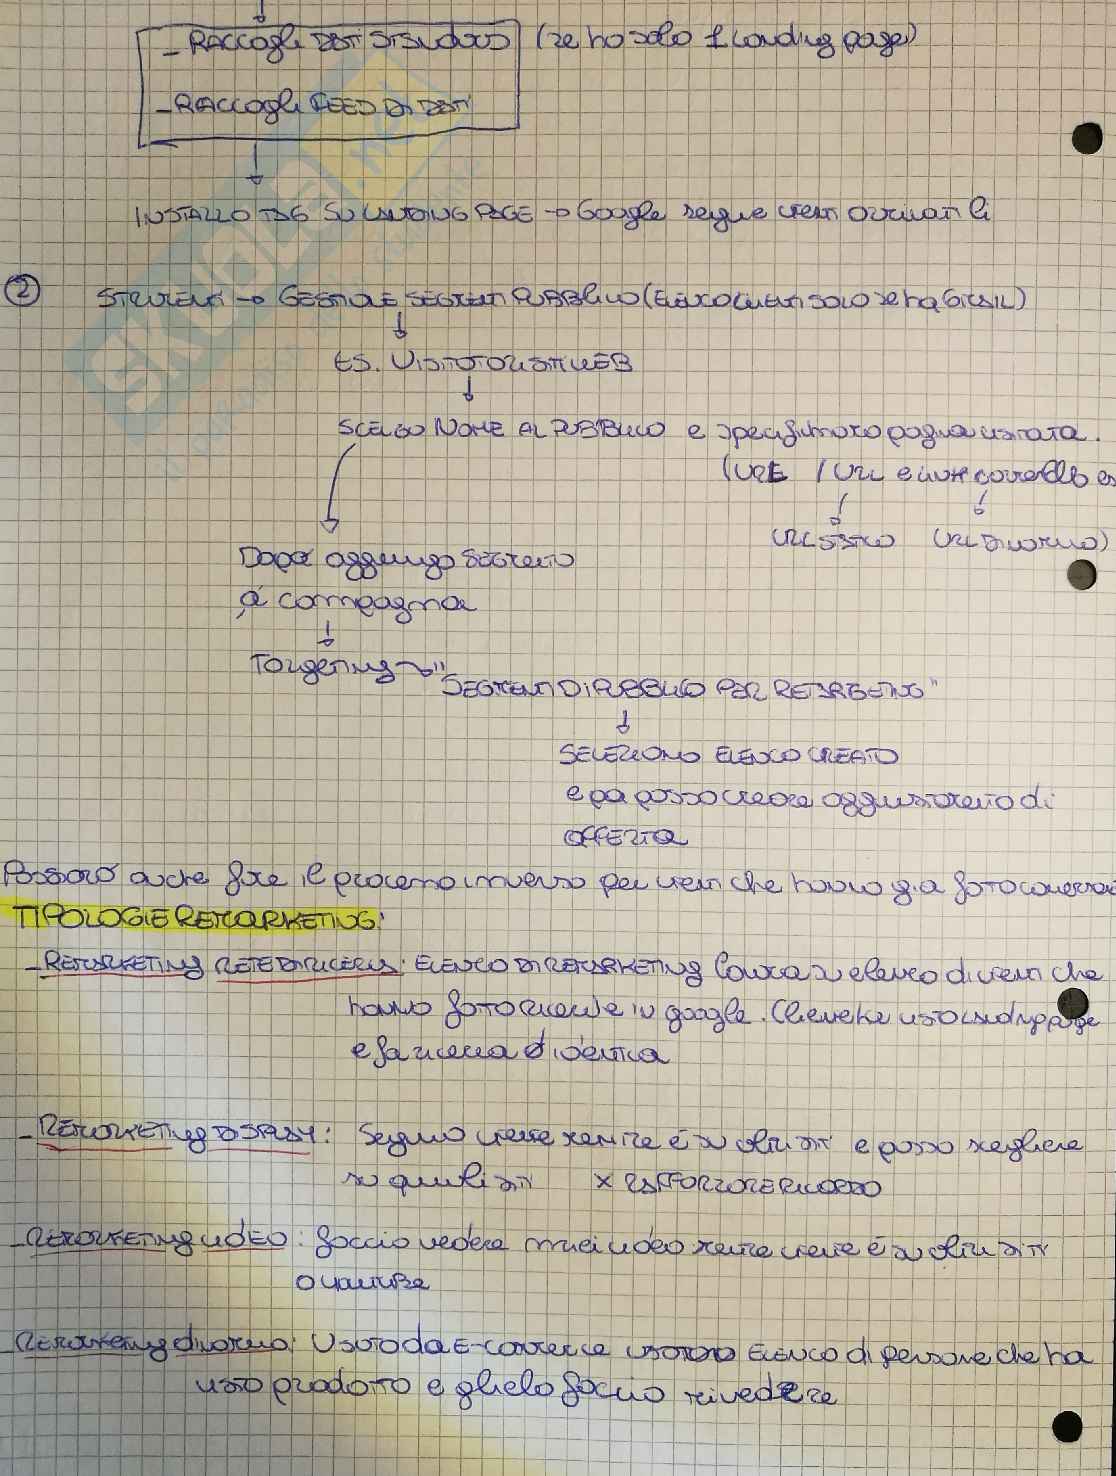 - RACCOGLI DATI STANDARD (se ho solo 1 landing page)
- RACCOGLI FEED DI DATI
INSTALLO TAG SU LANDING PAGE → Google segue utenti
② STRUMENTI → GESTIONE SEGMENTI PUBBLICO (ELENCO CLIENTI SOLO SE HA GIÀ
ES. VISITATORI SITI WEB
SCELGO NOME AL PUBBLICO e specifico pagina visitata.
(URL / URL e
URL STATICO URL DINAMICO)
Dopo aggiungo SEGMENTO
a campagna
Targeting → "
SEGMENTI DI PUBBLICO PER RETARGETING"
SELEZIONO ELENCO CREATO
e poi posso creare aggiustamento di
OFFERTA
Possono anche fare il processo inverso per utenti che hanno già fatto conversioni
TIPOLOGIE REMARKETING:
- REMARKETING RETE DI RICERCA: ELENCO DI REMARKETING basato su elenco di utenti che
hanno fatto ricerche in google. Utente ha visto landing page
e fa ricerca identica
- REMARKETING DISPLAY: Seguo utente mentre è su altri siti e posso scegliere
su quali siti x RAFFORZARE RICORDO
- REMARKETING VIDEO: faccio vedere miei video mentre utente è su altri siti
o YouTube
Remarketing dinamico: Usato da E-commerce usando ELENCO di persone che ha
visto prodotto e glielo faccio rivedere
SKUOLA.net